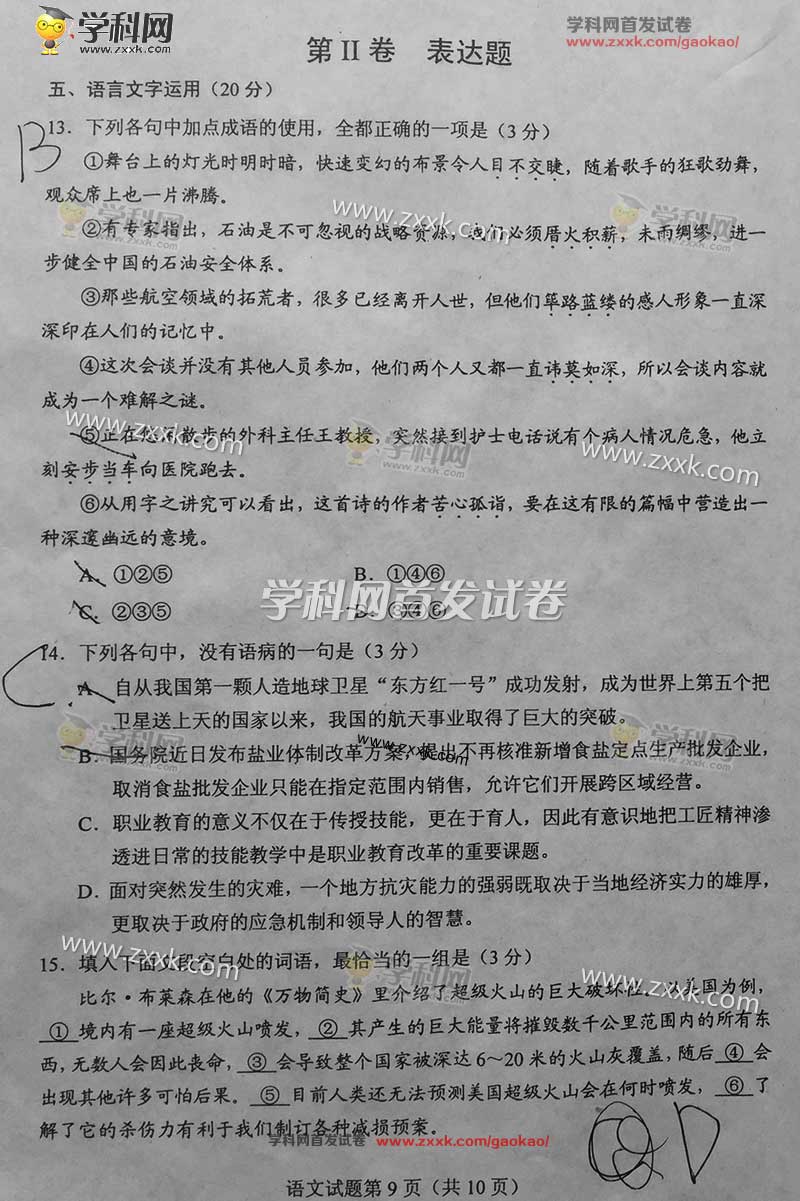 学科网
www.zxxk.com
学科网首发试卷
www.zxxk.com/gaokao/
第 II 卷 表达题
五、语言文字运用(20 分)
B
13. 下列各句中加点成语的使用,全都正确的一项是(3 分)
①舞台上的灯光时明时暗,快速变幻的布景令人目不交睫,随着歌手的狂歌劲舞,
观众席上也一片沸腾。
②有专家指出,石油是不可忽视的战略资源,我们必须厝火积薪,未雨绸缪,进一
步健全中国的石油安全体系。
③那些航空领域的拓荒者,很多已经离开人世,但他们筚路蓝缕的感人形象一直深
深印在人们的记忆中。
④这次会谈并没有其他人员参加,他们两个人又都一直讳莫如深,所以会谈内容就
成为一个难解之谜。
⑤正在悠闲散步的外科主任王教授,突然接到护士电话说有个病人情况危急,他立
刻安步当车向医院跑去。
⑥从用字之讲究可以看出,这首诗的作者苦心孤诣,要在这有限的篇幅中营造出一
种深邃幽远的意境。
A. ①②⑤ B. ①④⑥
C. ②③⑤ D. ③④⑥
学科网首发试卷
C
14. 下列各句中,没有语病的一句是(3 分)
A. 自从我国第一颗人造地球卫星“东方红一号”成功发射,成为世界上第五个把
卫星送上天的国家以来,我国的航天事业取得了巨大的突破。
B. 国务院近日发布盐业体制改革方案,提出不再核准新增食盐定点生产批发企业,
取消食盐批发企业只能在指定范围内销售,允许它们开展跨区域经营。
C. 职业教育的意义不仅在于传授技能,更在于育人,因此有意识地把工匠精神渗
透进日常的技能教学中是职业教育改革的重要课题。
D. 面对突然发生的灾难,一个地方抗灾能力的强弱既取决于当地经济实力的雄厚,
更取决于政府的应急机制和领导人的智慧。
15. 填入下面文段空白处的词语,最恰当的一组是(3 分)
比尔·布莱森在他的《万物简史》里介绍了超级火山的巨大破坏性。以美国为例,
① 境内有一座超级火山喷发, ② 其产生的巨大能量将摧毁数千公里范围内的所有东
西,无数人会因此丧命, ③ 会导致整个国家被深达 6~20 米的火山灰覆盖,随后 ④ 会
出现其他许多可怕后果。 ⑤ 目前人类还无法预测美国超级火山会在何时喷发, ⑥ 了
解了它的杀伤力有利于我们制订各种减损预案。
D
学科网首发试卷 www.zxxk.com/gaokao/
语文试题第 9 页(共 10 页)